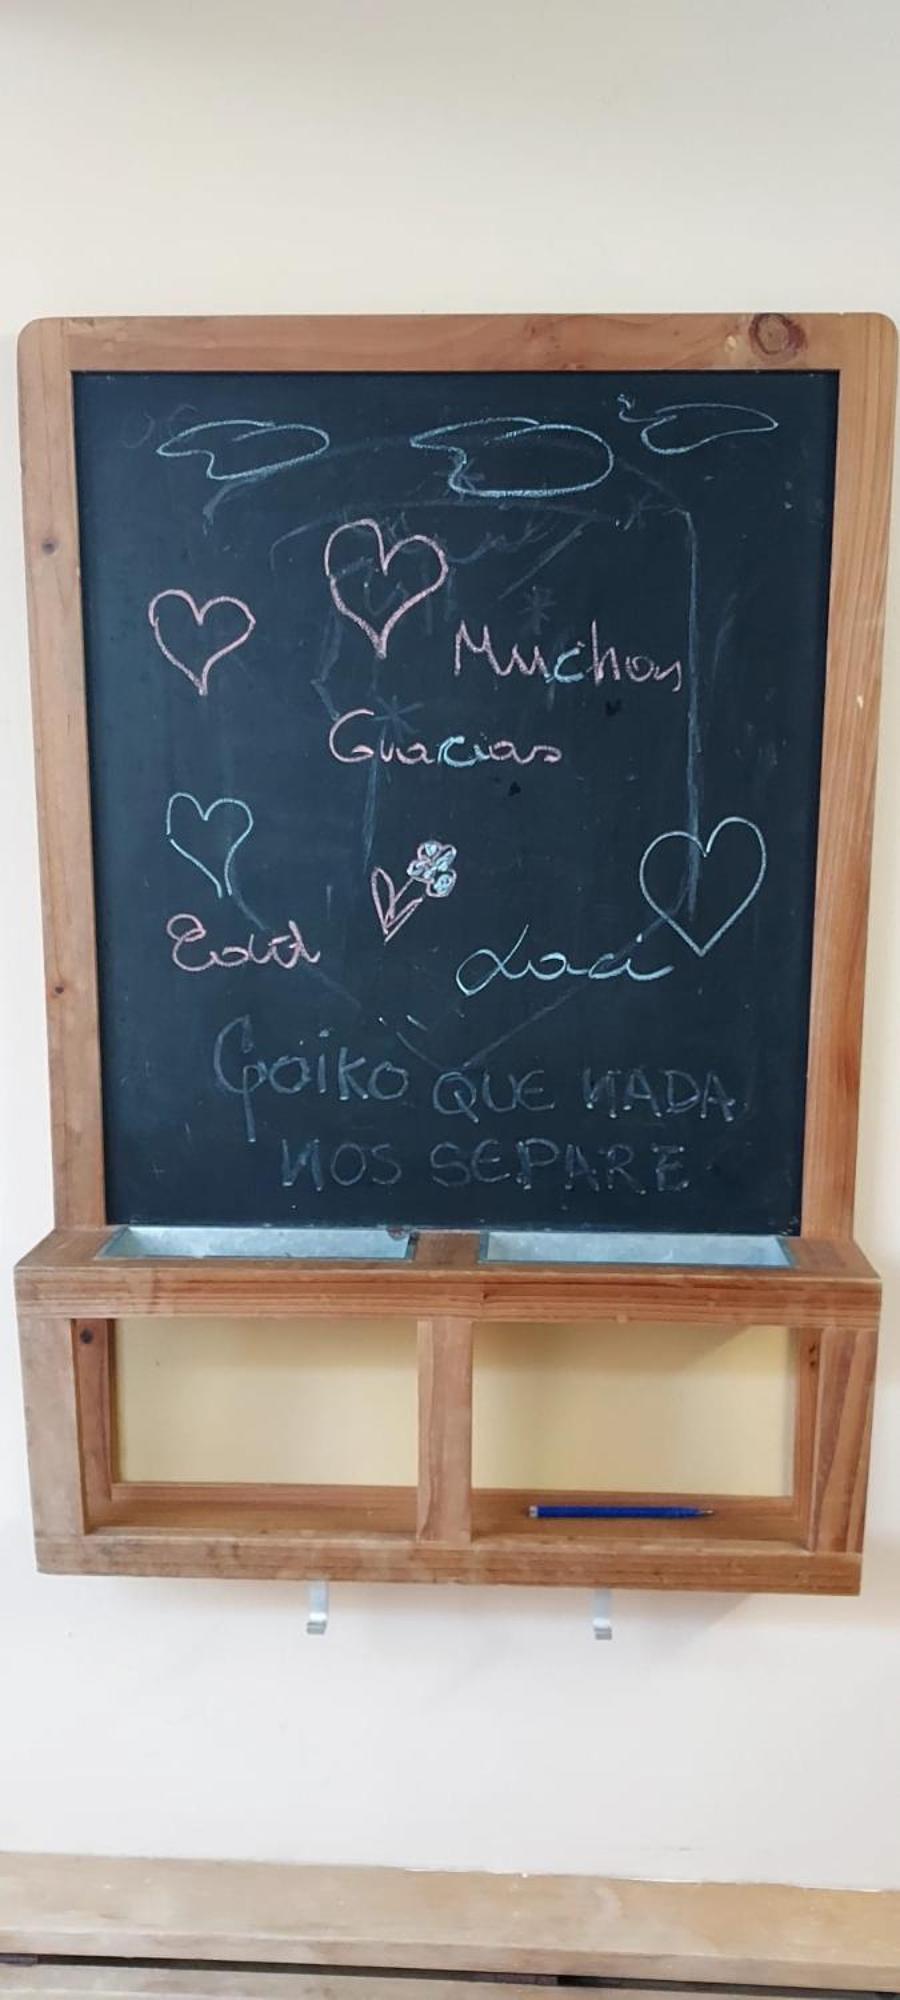 Muchas
Gracias
Edit Laci
Goiko QUE NADA
NOS SEPARE